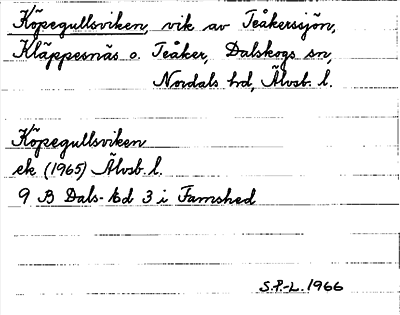 Köpegullsviken, vik av Teåkerssjön,
Kläppesnäs o. Teåker, Dalskogs sn,
Nordals hd, Älvsb. l.
Köpegullsviken
ek (1965) Älvsb. l.
9 B Dals-Ed 3 i Famshed
S.P.-L. 1966